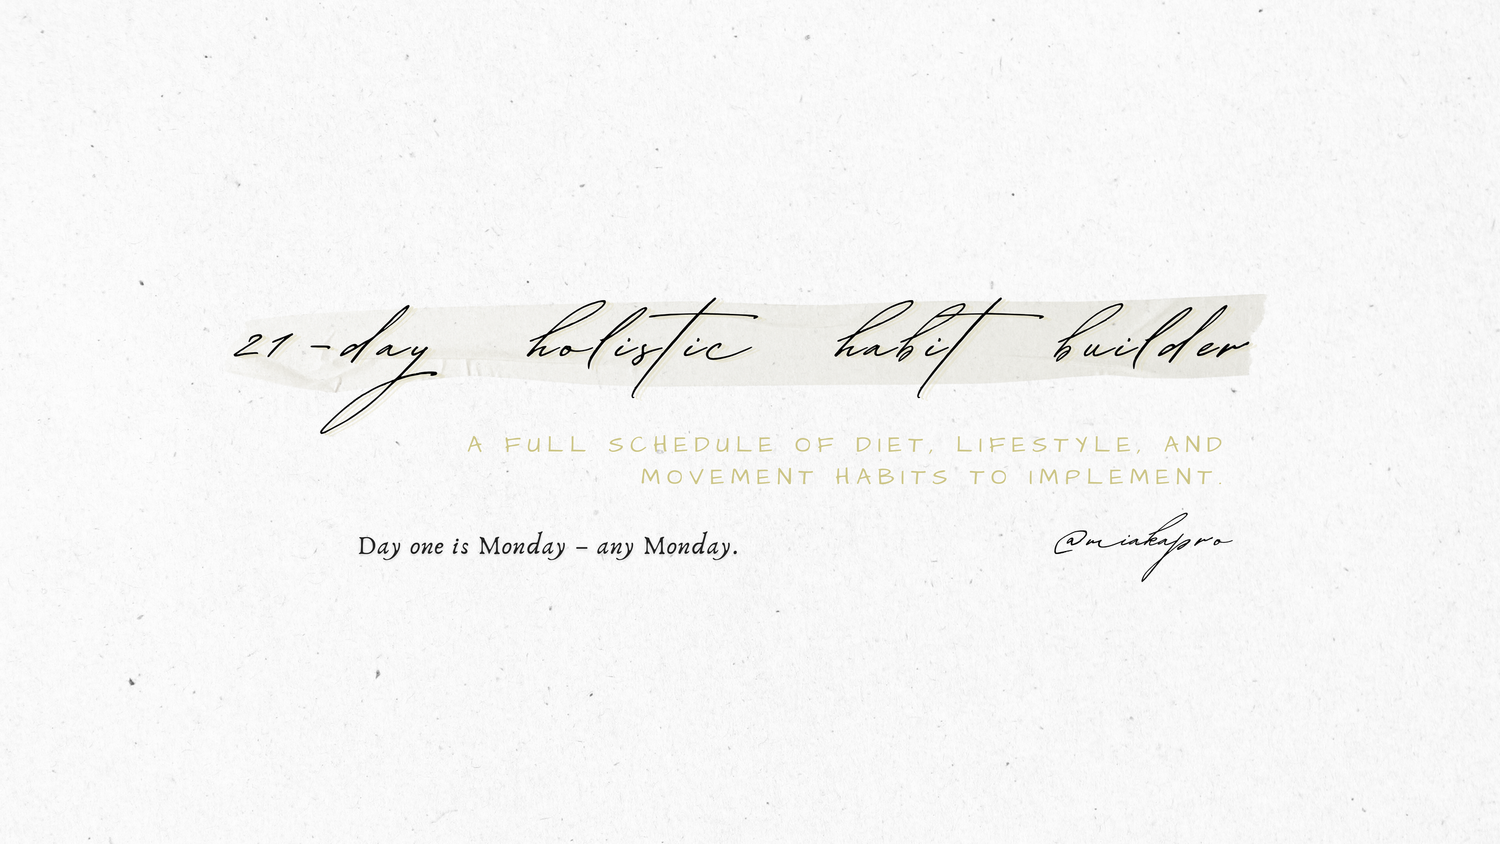 21-day holistic habit builder
A FULL SCHEDULE OF DIET, LIFESTYLE, AND
MOVEMENT HABITS TO IMPLEMENT.
Day one is Monday – any Monday.
@miakapro